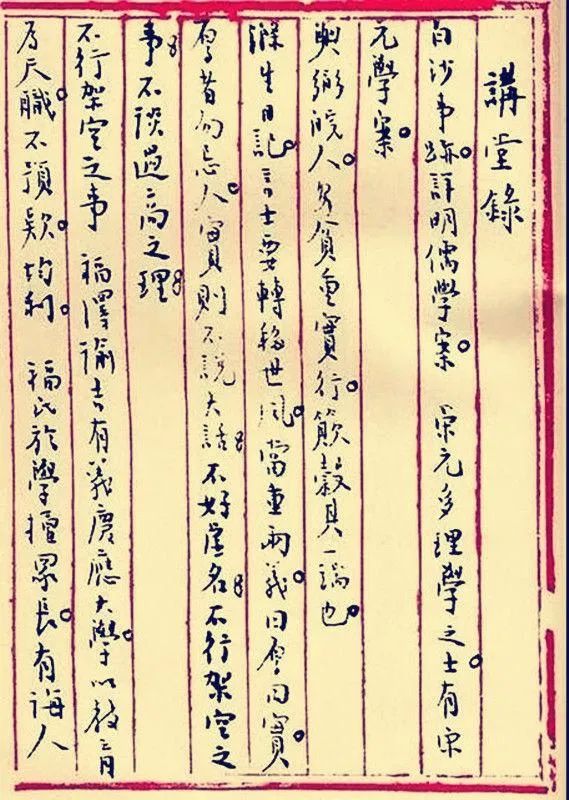 講堂錄
白沙事跡詳明儒學案。 宋元多理學之士。有宋
元學案。
與弼皖人。貧重實行。簸穀其一端也。
滌生日記。言士要轉移世風。當重兩義。曰厚曰實。
厚者勿忌人。實則不說大話。不好虛名。不行架空之
事。不談過高之理。
不行架空之事 福澤諭吉有義慶應大學。以教育
為天職不預款。均利。 福氏於學擅眾長。有誨人